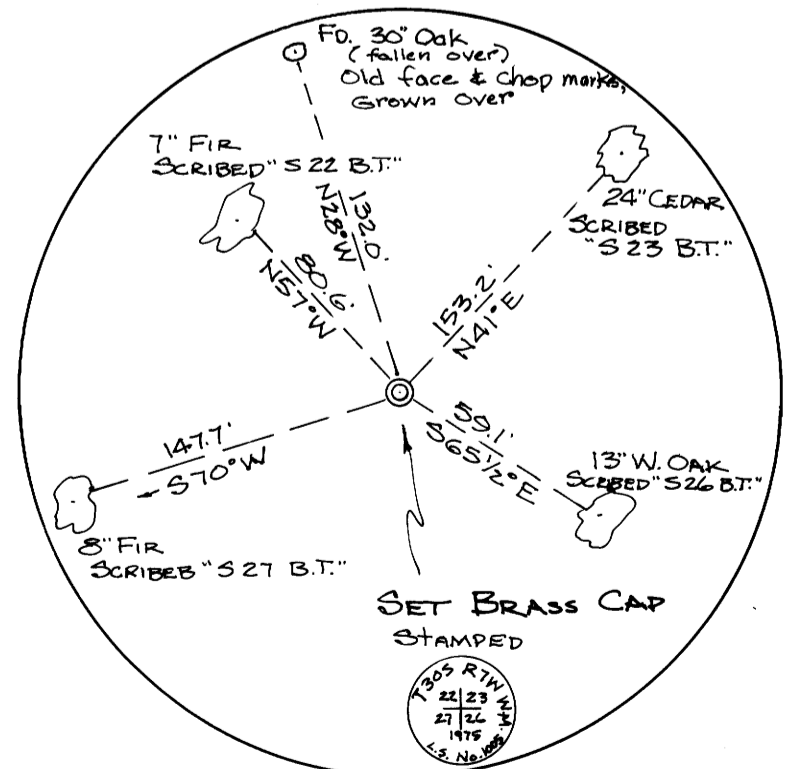 FD. 30" Oak
(fallen over)
Old face & Chop marks,
Grown Over
7" FIR
SCRIBED "S 22 B.T."
132.0'
N28°W
24" CEDAR
SCRIBED
"S 23 B.T."
80.6'
N57°W
153.2'
N41°E
147.7'
S70°W
59.1'
S65½°E
13" W. OAK
SCRIBED "S26 B.T."
8" FIR
SCRIBEB "S 27 B.T."
SET BRASS CAP
STAMPED
T30S R7W W.M.
22 23
27 26
1975
L.S. No. 1005